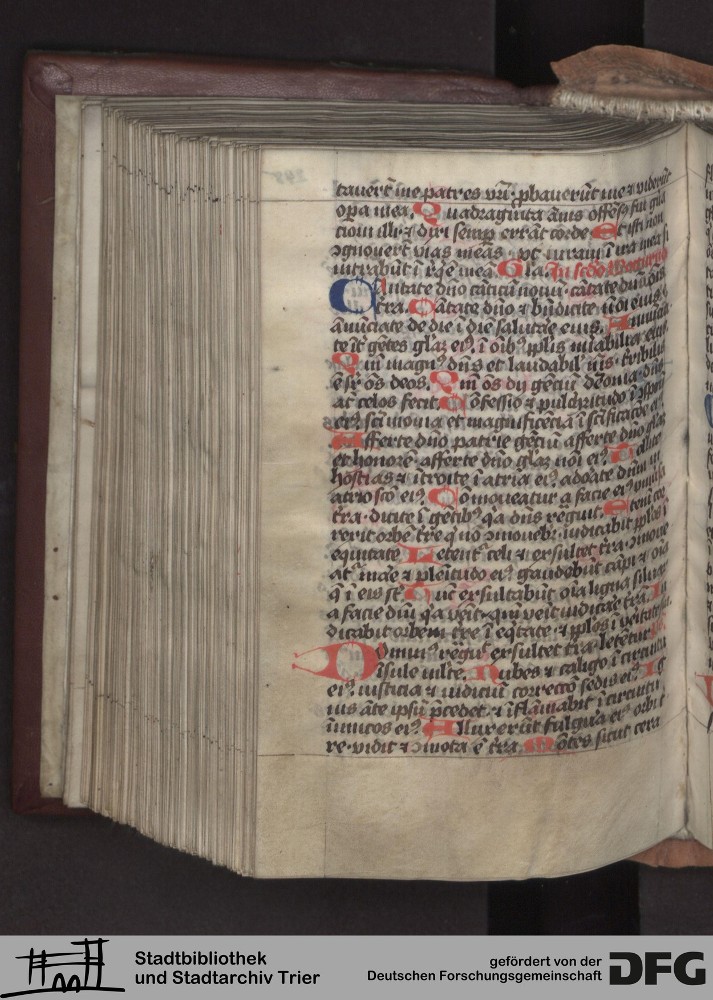 tauert̄ me patres vr̄i · ꝓbauerūt me ⁊ videru͞t
oꝑa mea. Quadraginta ānis offēsꝰ fui gn̄a
tioni illi · ⁊ dixi semꝑ errāt corde Et isti non
ꝯgnouert̄ vias meas · vt iuraui ī ira mea si
intrabūt ī rēqiē meā Gl̄a. In scd̄o Nocturno
Cantate dn̄o cāticū nouū · cātate dn̄o oīs
tr̄a. Cātate dn̄o ⁊ bn̄dicite nōi eiꝰ
ānūciate de die ī die salutāe eius. Annūcia
te īt̄ gētes gl̄az eiꝰ. ī oībꝰ ppl̄is mīabilia eius.
Qm̄ magnꝰ dn̄s et laudabil̓ nīs · tr̄ibilis
ē sr̄ oēs deos. Qm̄ oēs dij gētiū demonia · dn̄s
aūt celos fecit. Cōfessio ⁊ pulcritudo ī ꝯspectu
eiꝰ · scīmonia et magnificētia ī scīficacōe eiꝰ
Afferte dn̄o patrie gētiū afferte dn̄o gl̄az
et honorē · afferte dn̄o gl̄az nōi eiꝰ. Tollite
hostias ⁊ ītroite ī atria eiꝰ · adoate dūm in
atrio scō eiꝰ. Cōmoueatur a facie eiꝰ vniūsa
tr̄a · dicite ī gētibꝰ qa dn̄s regnit. Etem̄ cor
rexit orbē tr̄e q nō ꝯmouebr̄ · iudicabit ppl̄os ī
equitate Letent᷑ celi ⁊ exultet tr̄a · ꝯmoue
at᷑ māe ⁊ pleītudo eiꝰ · gaudebūt cāpi ⁊ oīa
q ī eis st̄. Tūc exultabūt oīa ligna siluaꝝ
a facie dn̄i qa veīt · qm̄ veīt iudicāe tr̄a. Iu
dicabit orbem tr̄e ī eq̄tate · ⁊ ppl̄os ī veritate sua
Domīnꝰ regn̄ · exultet tr̄a · letēt᷑
īsule multe. Nubes ⁊ caligo ī circuitu
eiꝰ · iusticia ⁊ iudiciū correctō sedis eiꝰ. Ig
nis āte ipsū p̄cedet · ⁊ īflāmabit ī circuitu
īmicos eiꝰ. Alluxerūt fulgura eiꝰ orbi t
re · vidit ⁊ ꝯmota ē tr̄a. Mōtes sicut cera
Stadtbibliothek
und Stadtarchiv Trier
gefördert von der
Deutschen Forschungsgemeinschaft
DFG